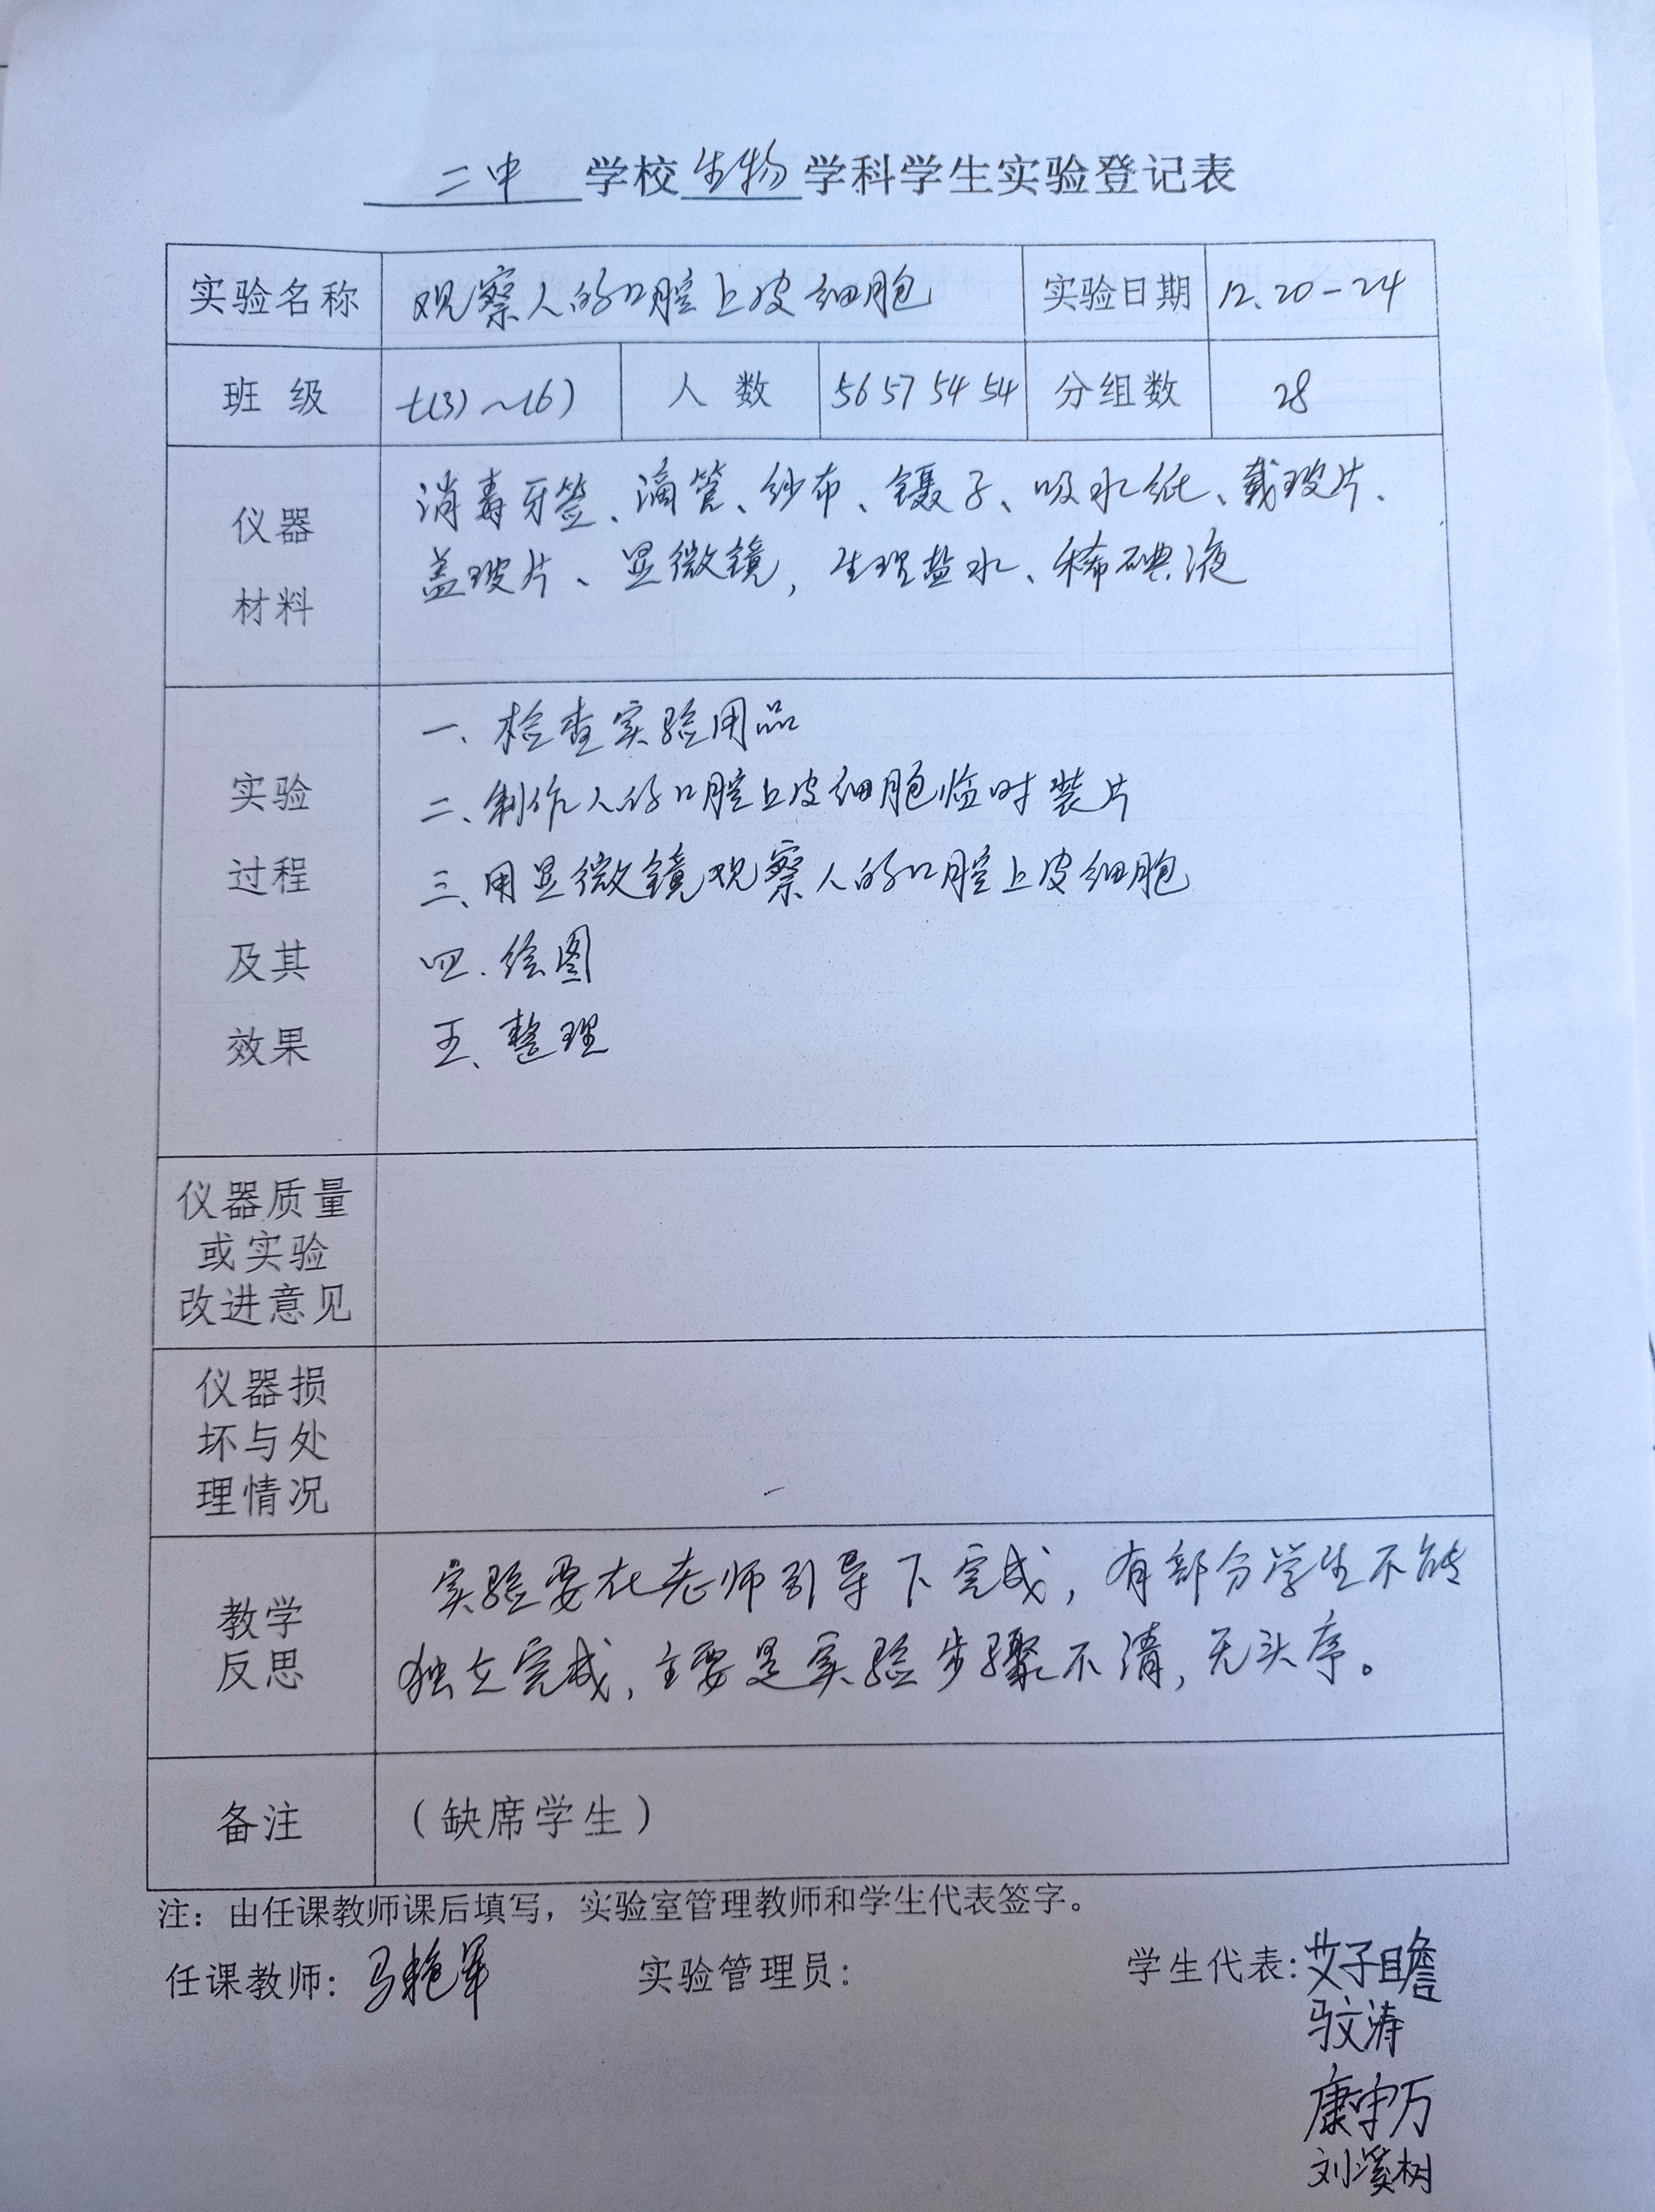 二中学校生物学科学生实验登记表
实验名称 观察人的口腔上皮细胞 实验日期 12.20-24
班级 七(3)~(6) 人数 56 57 54 54 分组数 28
仪器
材料
消毒牙签、滴管、纱布、镊子、吸水纸、载玻片、
盖玻片、显微镜,生理盐水、稀碘液
实验
过程
及其
效果
一、检查实验用品
二、制作人的口腔上皮细胞临时装片
三、用显微镜观察人的口腔上皮细胞
四、绘图
五、整理
仪器质量
或实验
改进意见
仪器损
坏与处
理情况
教学
反思
实验要在老师引导下完成,有部分学生不能
独立完成,主要是实验步骤不清,无头序。
备注 (缺席学生)
注:由任课教师课后填写,实验室管理教师和学生代表签字。
任课教师: 马艳军 实验管理员: 学生代表: 艾子瞻
文涛
康中万
刘溪树